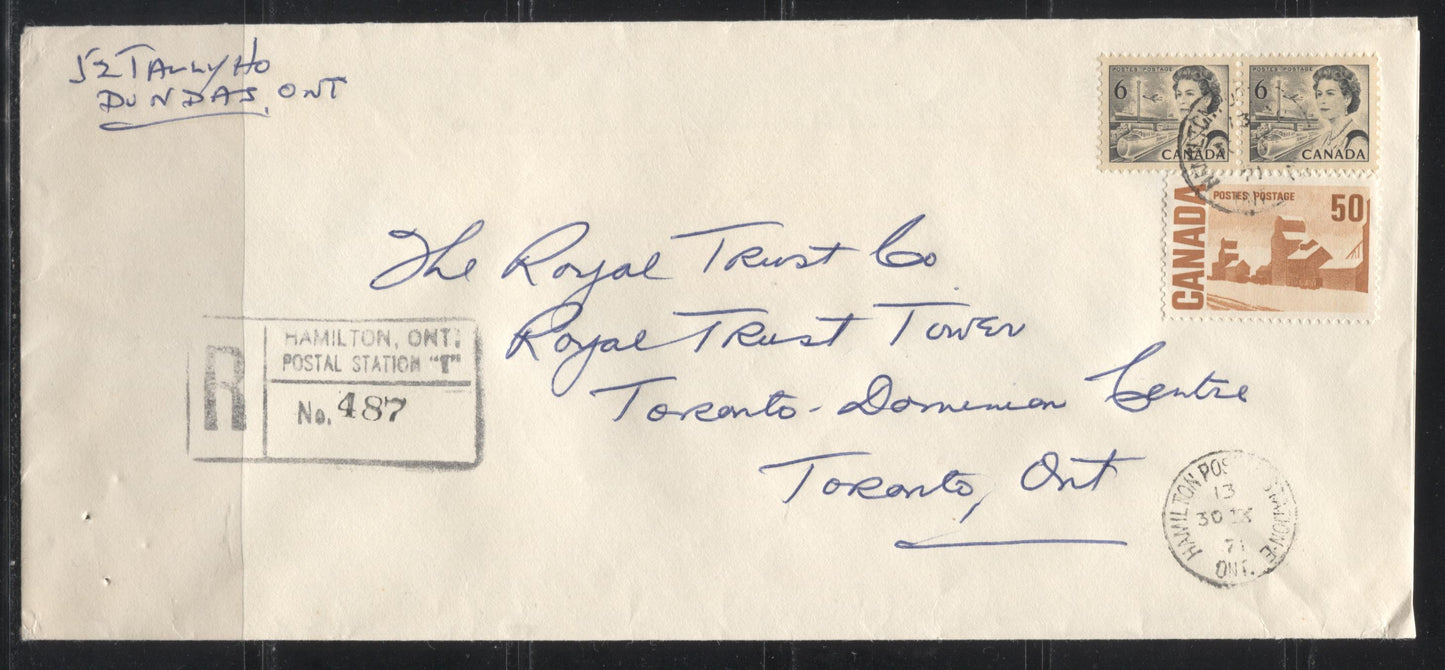 52 TALLY HO
DUNDAS, ONT
POSTES POSTAGE
6
CANADA
POSTES POSTAGE
6
CANADA
HAMILTON
CANADA
POSTES POSTAGE
50
The Royal Trust Co.
Royal Trust Tower
Toronto-Dominion Centre
Toronto, Ont
R
HAMILTON, ONT.
POSTAL STATION "T"
No. 487
HAMILTON POS STATION-E
13
30
71
ONT.